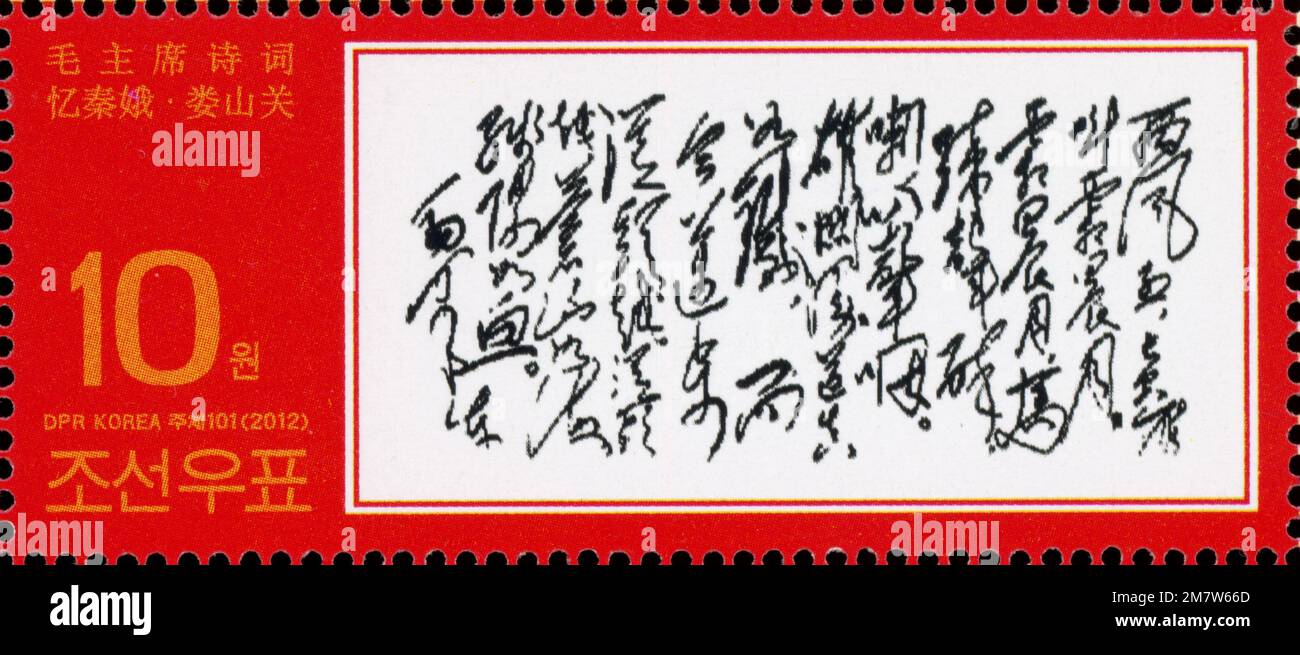 毛主席诗词
忆秦娥·娄山关
10원
DPR KOREA 주체101(2012)
조선우표
西风烈,长空雁
叫霜晨月。
霜晨月,馬
蹄聲碎
喇叭聲咽。
雄關漫道真
如鐵,而
今邁步
從頭越從頭
越蒼山如海
殘陽如血。
毛澤東
alamy
alamy
alamy
alamy
alamy
Image ID: 2M7W66D
www.alamy.com